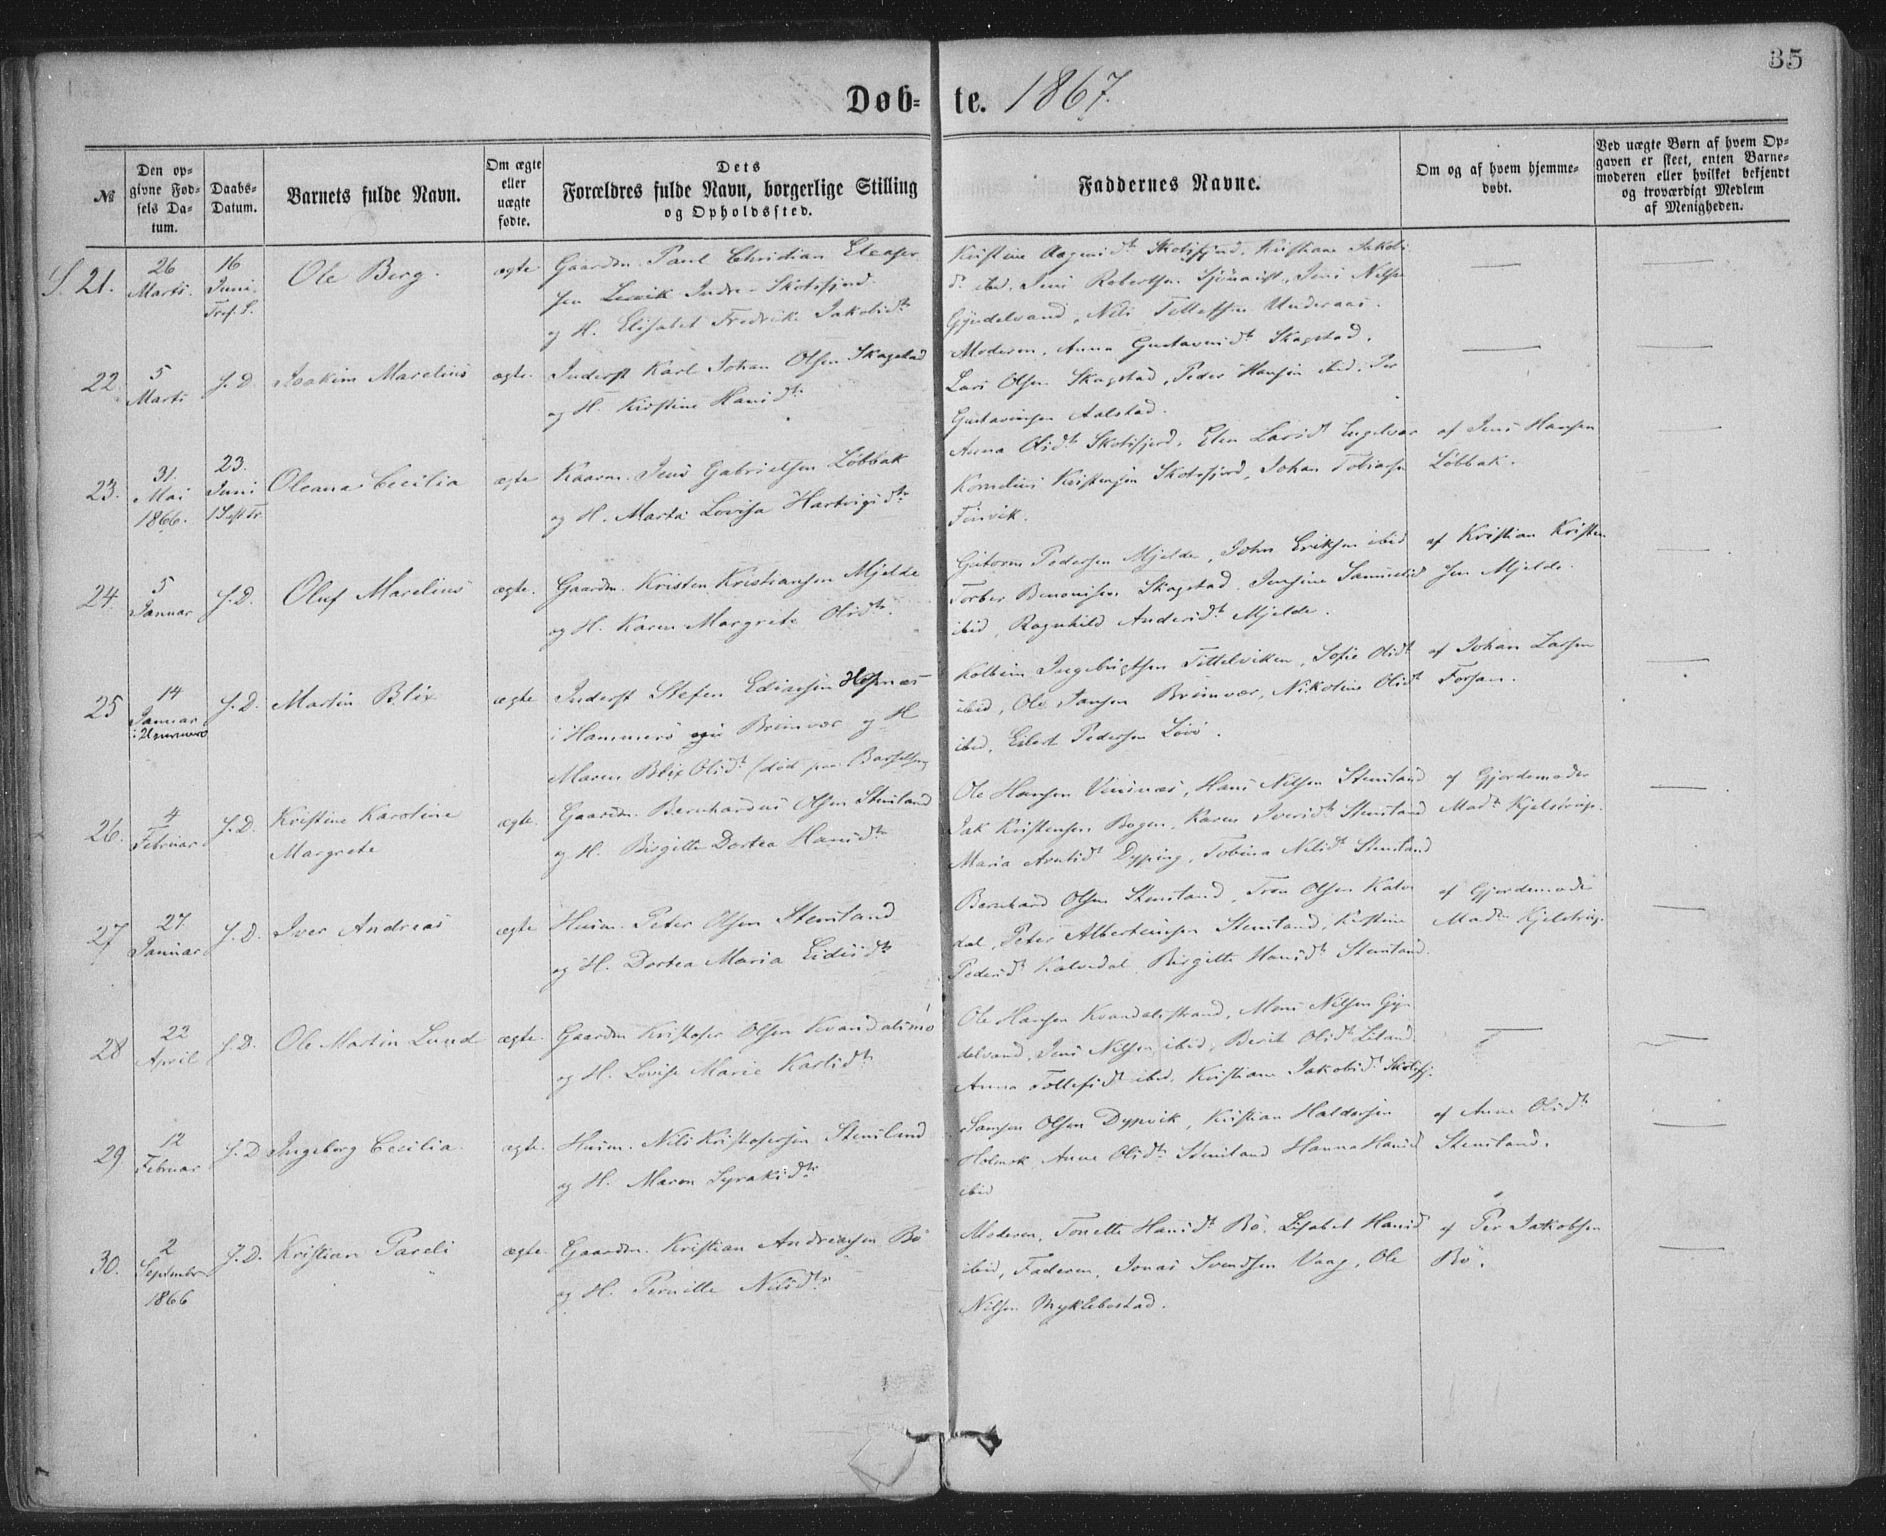 35
Døb- te. 1867.
№
Den op-
givne Fød-
sels Da-
tum.
Daabs-
Datum.
Barnets fulde Navn.
Om ægte
eller
uægte
fødte.
Dets
Forældres fulde Navn, borgerlige Stilling
og Opholdssted.
Faddernes Navne.
Om og af hvem hjemme-
døbt.
Ved uægte Børn af hvem Op-
gaven er skeet, enten Barne-
moderen eller hvilket bekjendt
og troværdigt Medlem
af Menigheden.
21.
26
Marts.
16
Juni
Ole Berg.
ægte
Gaardm. Paul Christian Eleaser
sen Indre-Skotsfjord.
og H. Elisabet Fredrike Jakobsdtr
Skotsfjord, Kristiane Jakobs
dtr ibid, Jens Robertsen Jens Nilsen
Gyndelvand, Nils Tollefsen Underaas.
22.
5
Marts
J. D.
Joakim Marelius
ægte.
Inderst Karl Johan Olsen Skagstad
og H. Kristine Hansdtr
Moderen, Anna Gustavusdtr Skagstad,
Lars Olsen Skagstad, Peder Hansen ibid, Per
Gustavusen Aalstad.
23.
31.
Mai
1866.
23.
Juni
Oleana Cecilia
ægte
Jens Gabrielsen Løbbak
og H. Marta Lovisa Hartvigsdtr
Anna Olsdtr Skotsfjord, Elen Larsdtr
Kornelius Kristensen Skotsfjord, Johan Tobiassen
Finvik.
af Jens Hansen
Løbbak.
24.
5
Januar
J. D.
Oluf Marelius
ægte.
Gaardm. Kristen Kristiansen Mjelde
og H. Karen Margrete Olsdtr
Guttorm Pedersen Mjelde, John Eriksen ibid
Torber Benonisen Skagstad, Jensine Samuelsd
ibid, Ragnhild Andersdtr Mjelde.
af Kristian Kristen
sen Mjelde.
25
14
Januar
J. D.
Martin Blix
ægte
Inderst Stefen Ediassen
i Hammerö Brennvær og H
Maren Blix Olsdtr (død paa Barselseng
Kolbein Ingebrigtsen Tittelviken, Sofie Olsdtr
ibid, Ole Jansen Brennvær, Nikoline Olsdtr
ibid, Edert Pedersen Løvö.
af Johan Larsen
Forsan.
26.
4
Februar
J. D.
Kristine Karoline
Margrete
ægte.
Gaardm. Bernhardus Olsen Stensland
og H. Birgitte Dortea Hansdtr
Ole Hansen Hans Nilsen Stensland
Isak Kristensen Bogen, Karen Iversdtr Stensland
Maria Dypping, Tobina Nilsdtr Stensland
af Gjordemoder
Mad. Kjelstrup.
27
27
Januar
J. D.
Iver Andreas
ægte
Husm. Peter Olsen Stensland
og H. Dortea Maria
Bernhard Olsen Stensland, Tron Olsen Kalve
dal, Peter Albertinsen Stensland, Kirstine
Pedersdtr Kalvedal, Birgitte Hansdtr Stensland.
af Gjordemoder
Mad. Kjelstrup.
28
22
April
J. D.
Ole Martin Lund
ægte.
Gaardm Kristofer Olsen Kvandalsmo
og H. Lovise Marie Karlsdtr
Ole Hansen Kvandalstrand, Mons Nilsen Gyn
delvand, Jens Nilsen ibid, Berit Olsdtr Liland.
Anna Tollefsdtr ibid, Kristiane Jakobsdtr Skotsfj.
29
12
Februar
J. D.
Ingeborg Cecilia.
ægte.
Husm. Nils Kristofersen Stensland
og H. Maren Syraksdtr
Samson Olsen Dypvik, Kristian Haldorsen
Holmok, Anne Olsdtr Stensland Hanna Hansd
ibid
af Anne Olsdtr
Stensland.
30.
2
September
1866
J. D.
Kristian Pareli
ægte.
Gaardm. Kristian Andreassen Bö
og H. Pernille Nilsdtr
Moderen, Tonette Hansdtr Bö, Lisabet Hansd
ibid, Faderen, Jonas Svendsen Vaag, Ole
Nilsen Myklebostad.
af Per Jakobsen
Bö.